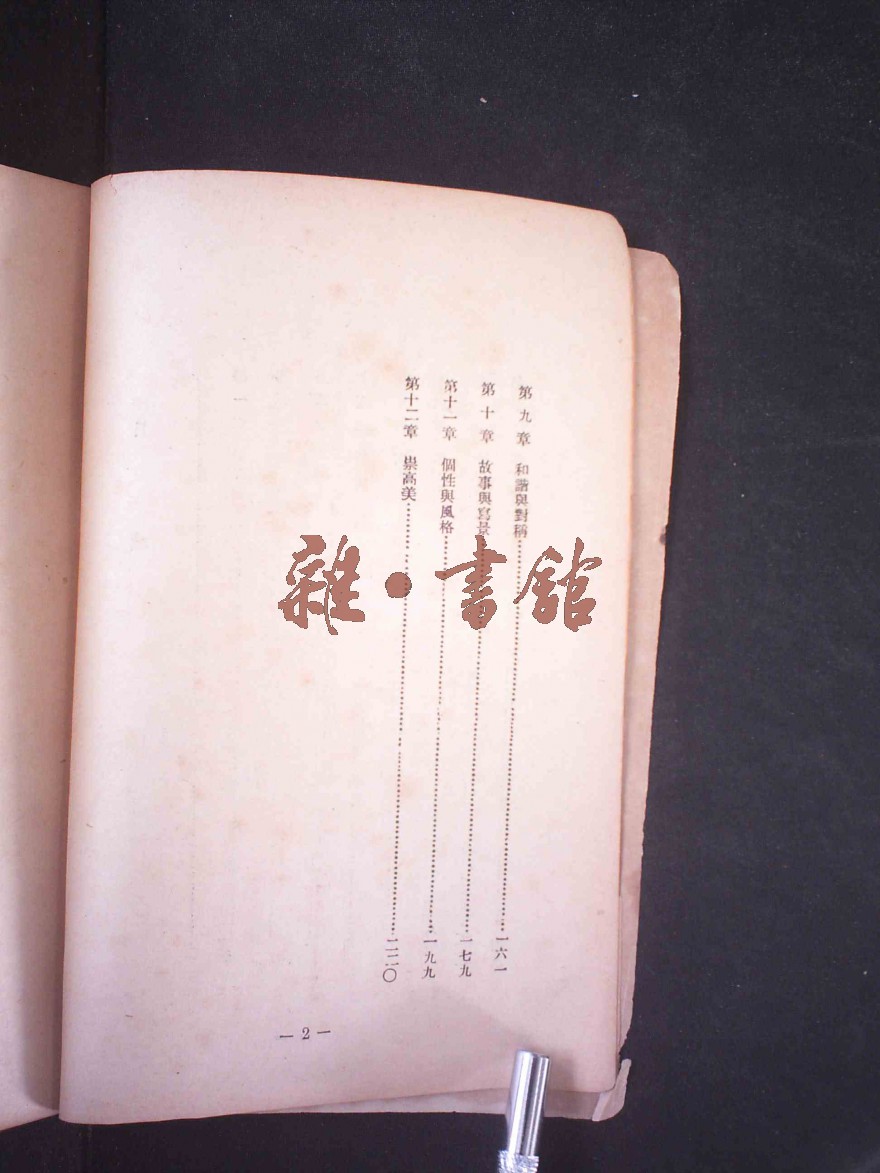 第九章 和諧與對稱……一六一
第十章 故事與寫景……一七九
第十一章 個性與風格……一九九
第十二章 崇高美……二二〇
— 2 —
雜·書館